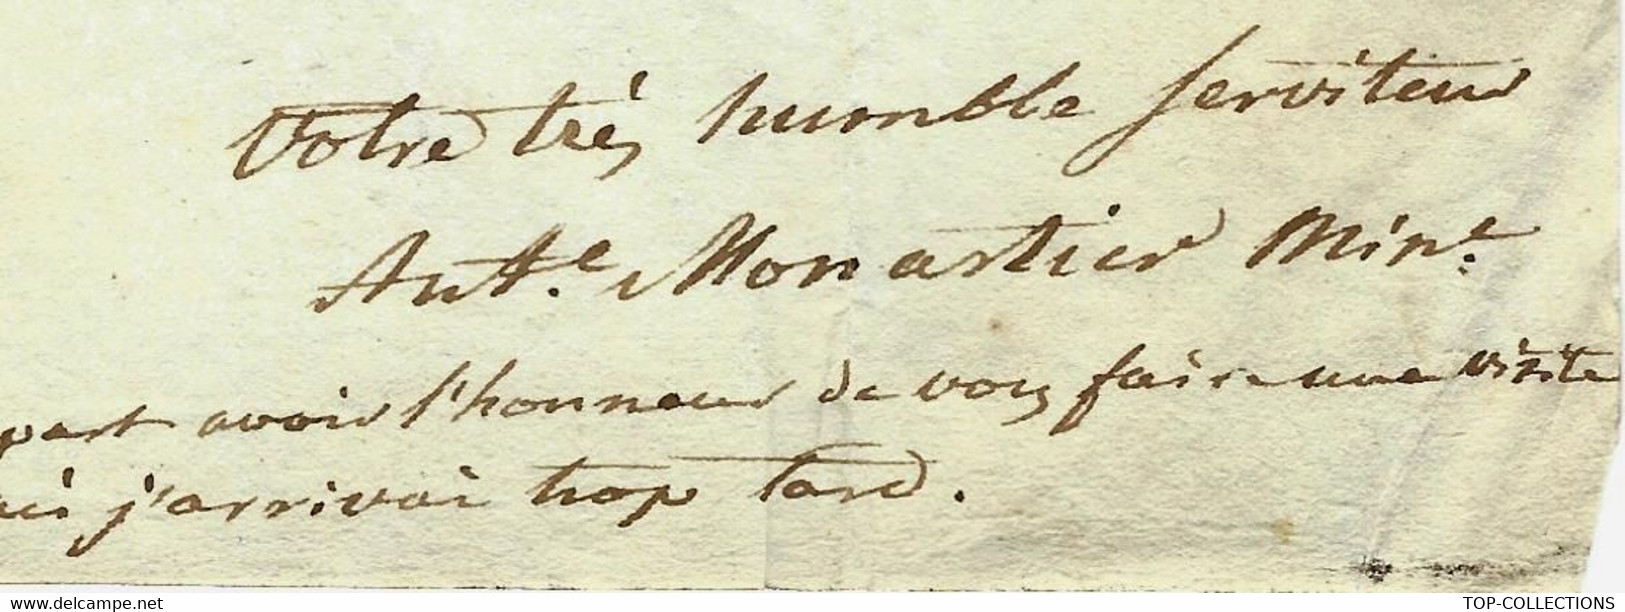 Votre très humble serviteur
Ant.e Monastier Min.e
part avoir l'honneur de vous faire une vizite
j'arrivai trop tard.
www.delcampe.net
TOP-COLLECTIONS